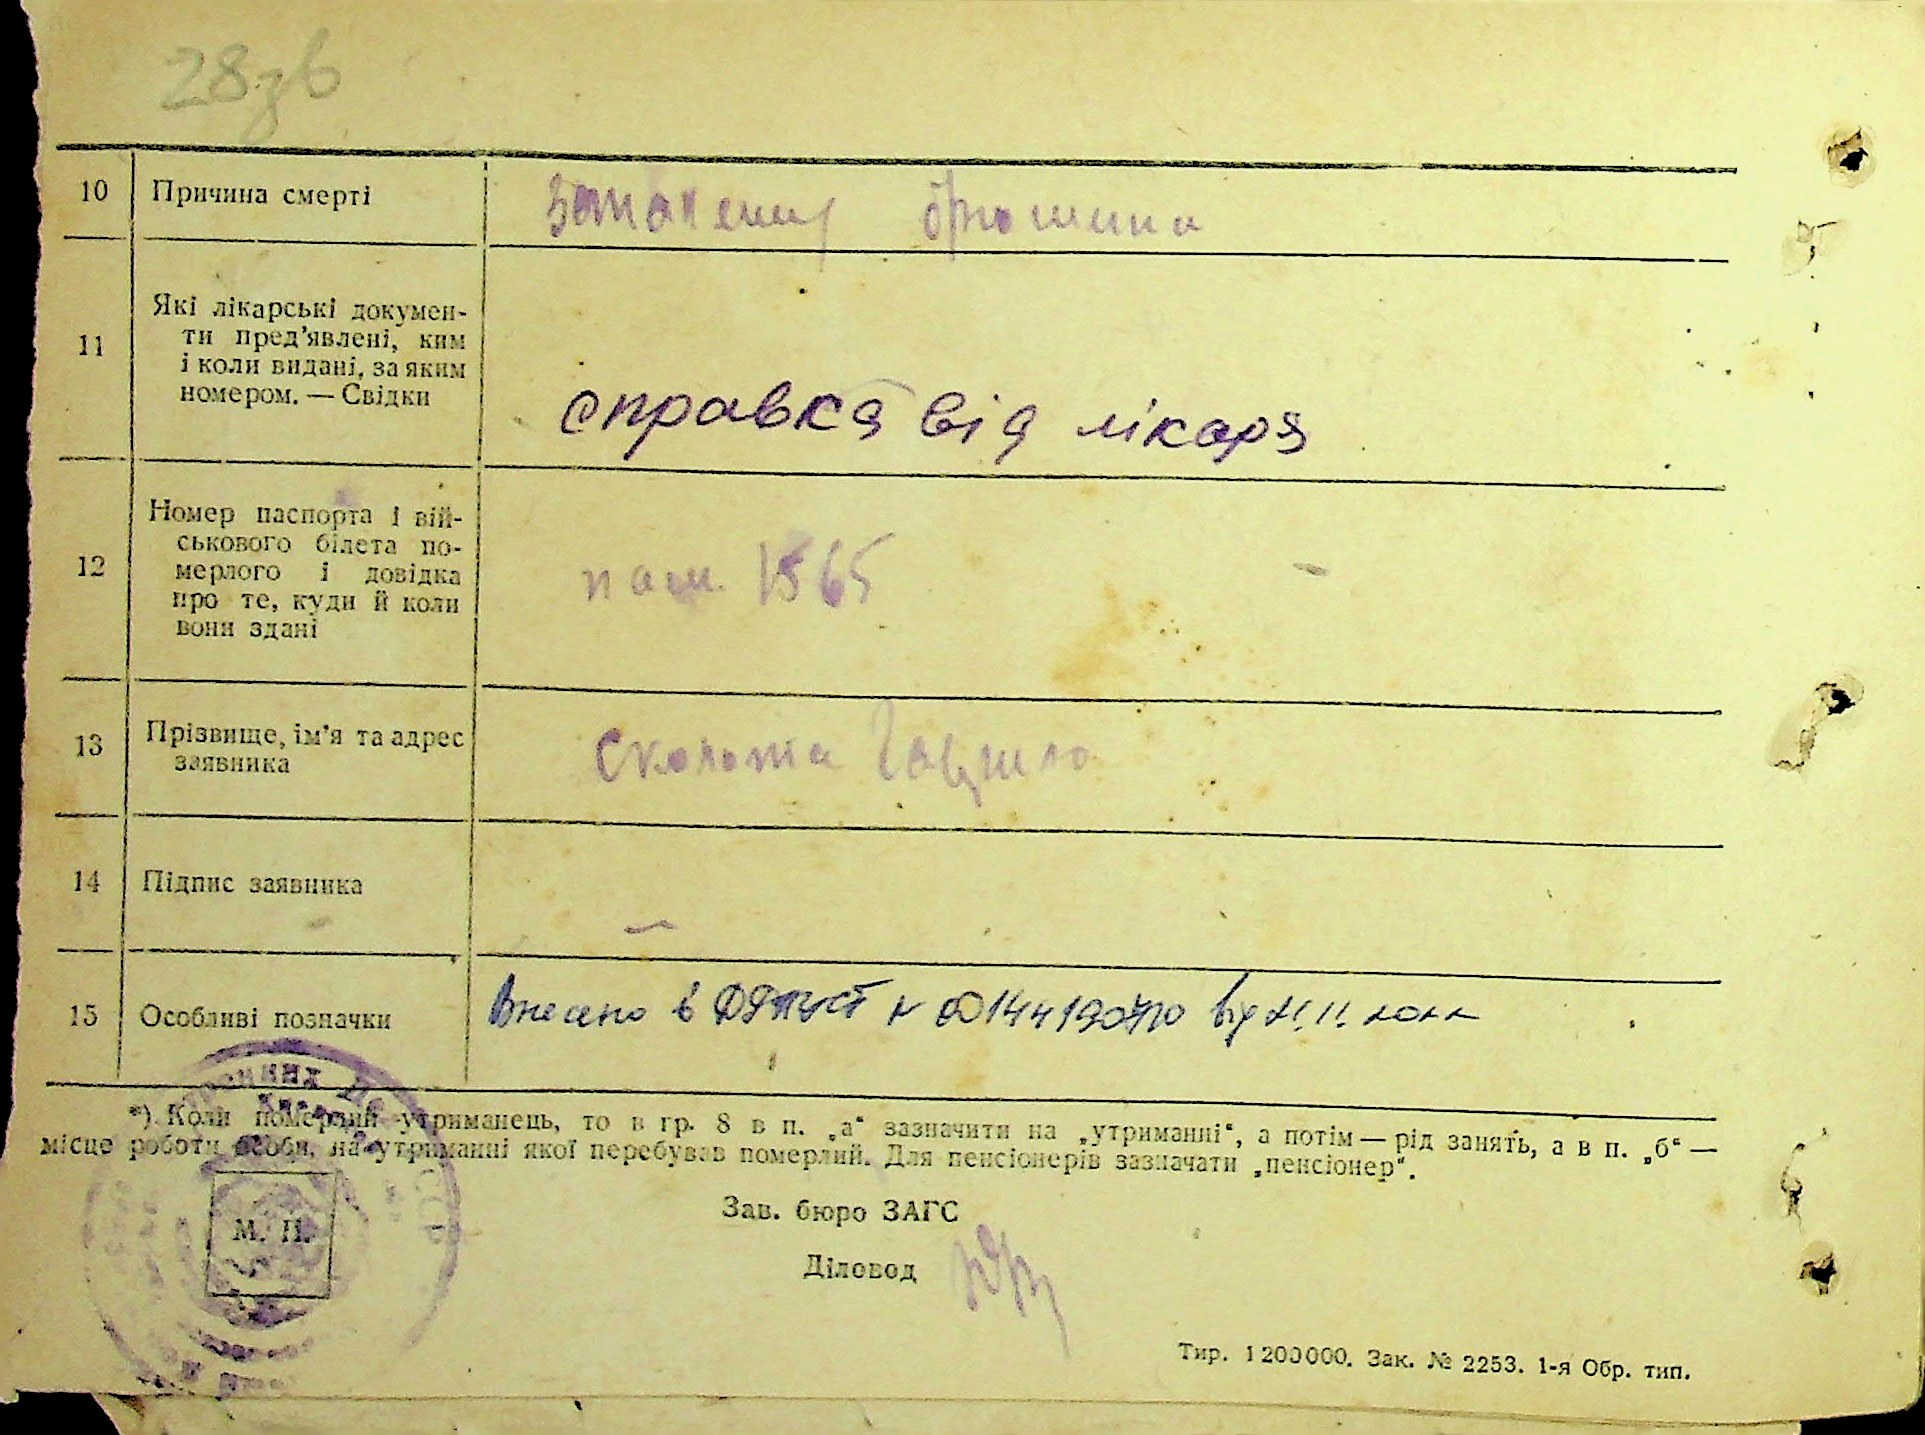 28зв
10 Причина смерті
11 Які лікарські докумен-
ти пред'явлені, ким
і коли видані, за яким
номером. — Свідки
справка від лікаря
12 Номер паспорта і вій-
ськового білета по-
мерлого і довідка
про те, куди й коли
вони здані
пасп. 1565
13 Прізвище, ім'я та адрес
заявника
14 Підпис заявника
15 Особливі позначки Внесено в від
*) Коли померлий утриманець, то в гр. 8 в п. „а“ зазначити на „утриманні“, а потім — рід занять, а в п. „б“ —
місце роботи особи, на утриманні якої перебував померлий. Для пенсіонерів зазначати „пенсіонер“.
Зав. бюро ЗАГС
М. П.
Діловод
Тир. 1200000. Зак. № 2253. 1-я Обр. тип.